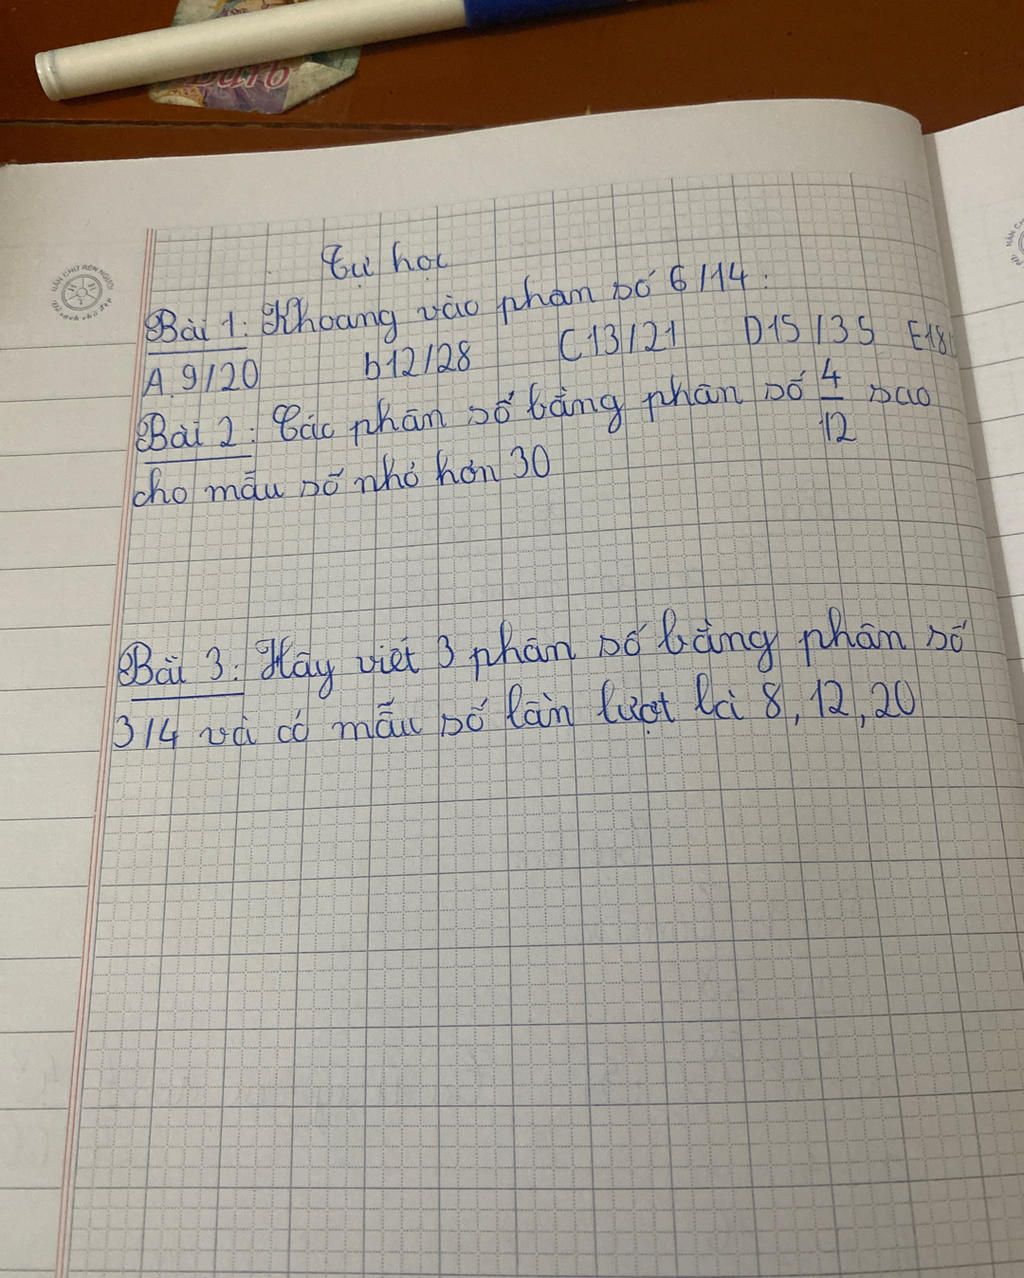 Barb
Tự học
Bài 1: Khoang vào phan số 6/14:
A. 9/20 b12/28 C13/21 D15/35 E18
Bài 2: Các phân số bằng phân số 4/12 sao
cho mẫu số nhỏ hơn 30
Bài 3: Hãy viết 3 phân số bằng phân số
3/4 và có mẫu số lần lượt là 8, 12, 20